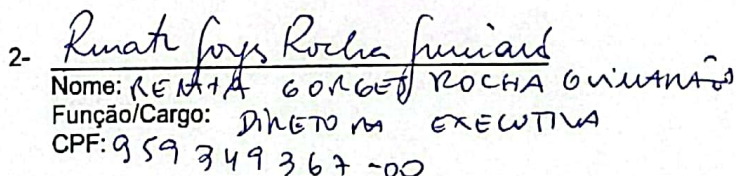 2- Renata Gorges Rocha Guimarã
Nome: RENATA GORGES ROCHA GUIMARÃES
Função/Cargo: DIRETORA EXECUTIVA
CPF: 959 349 367 -00